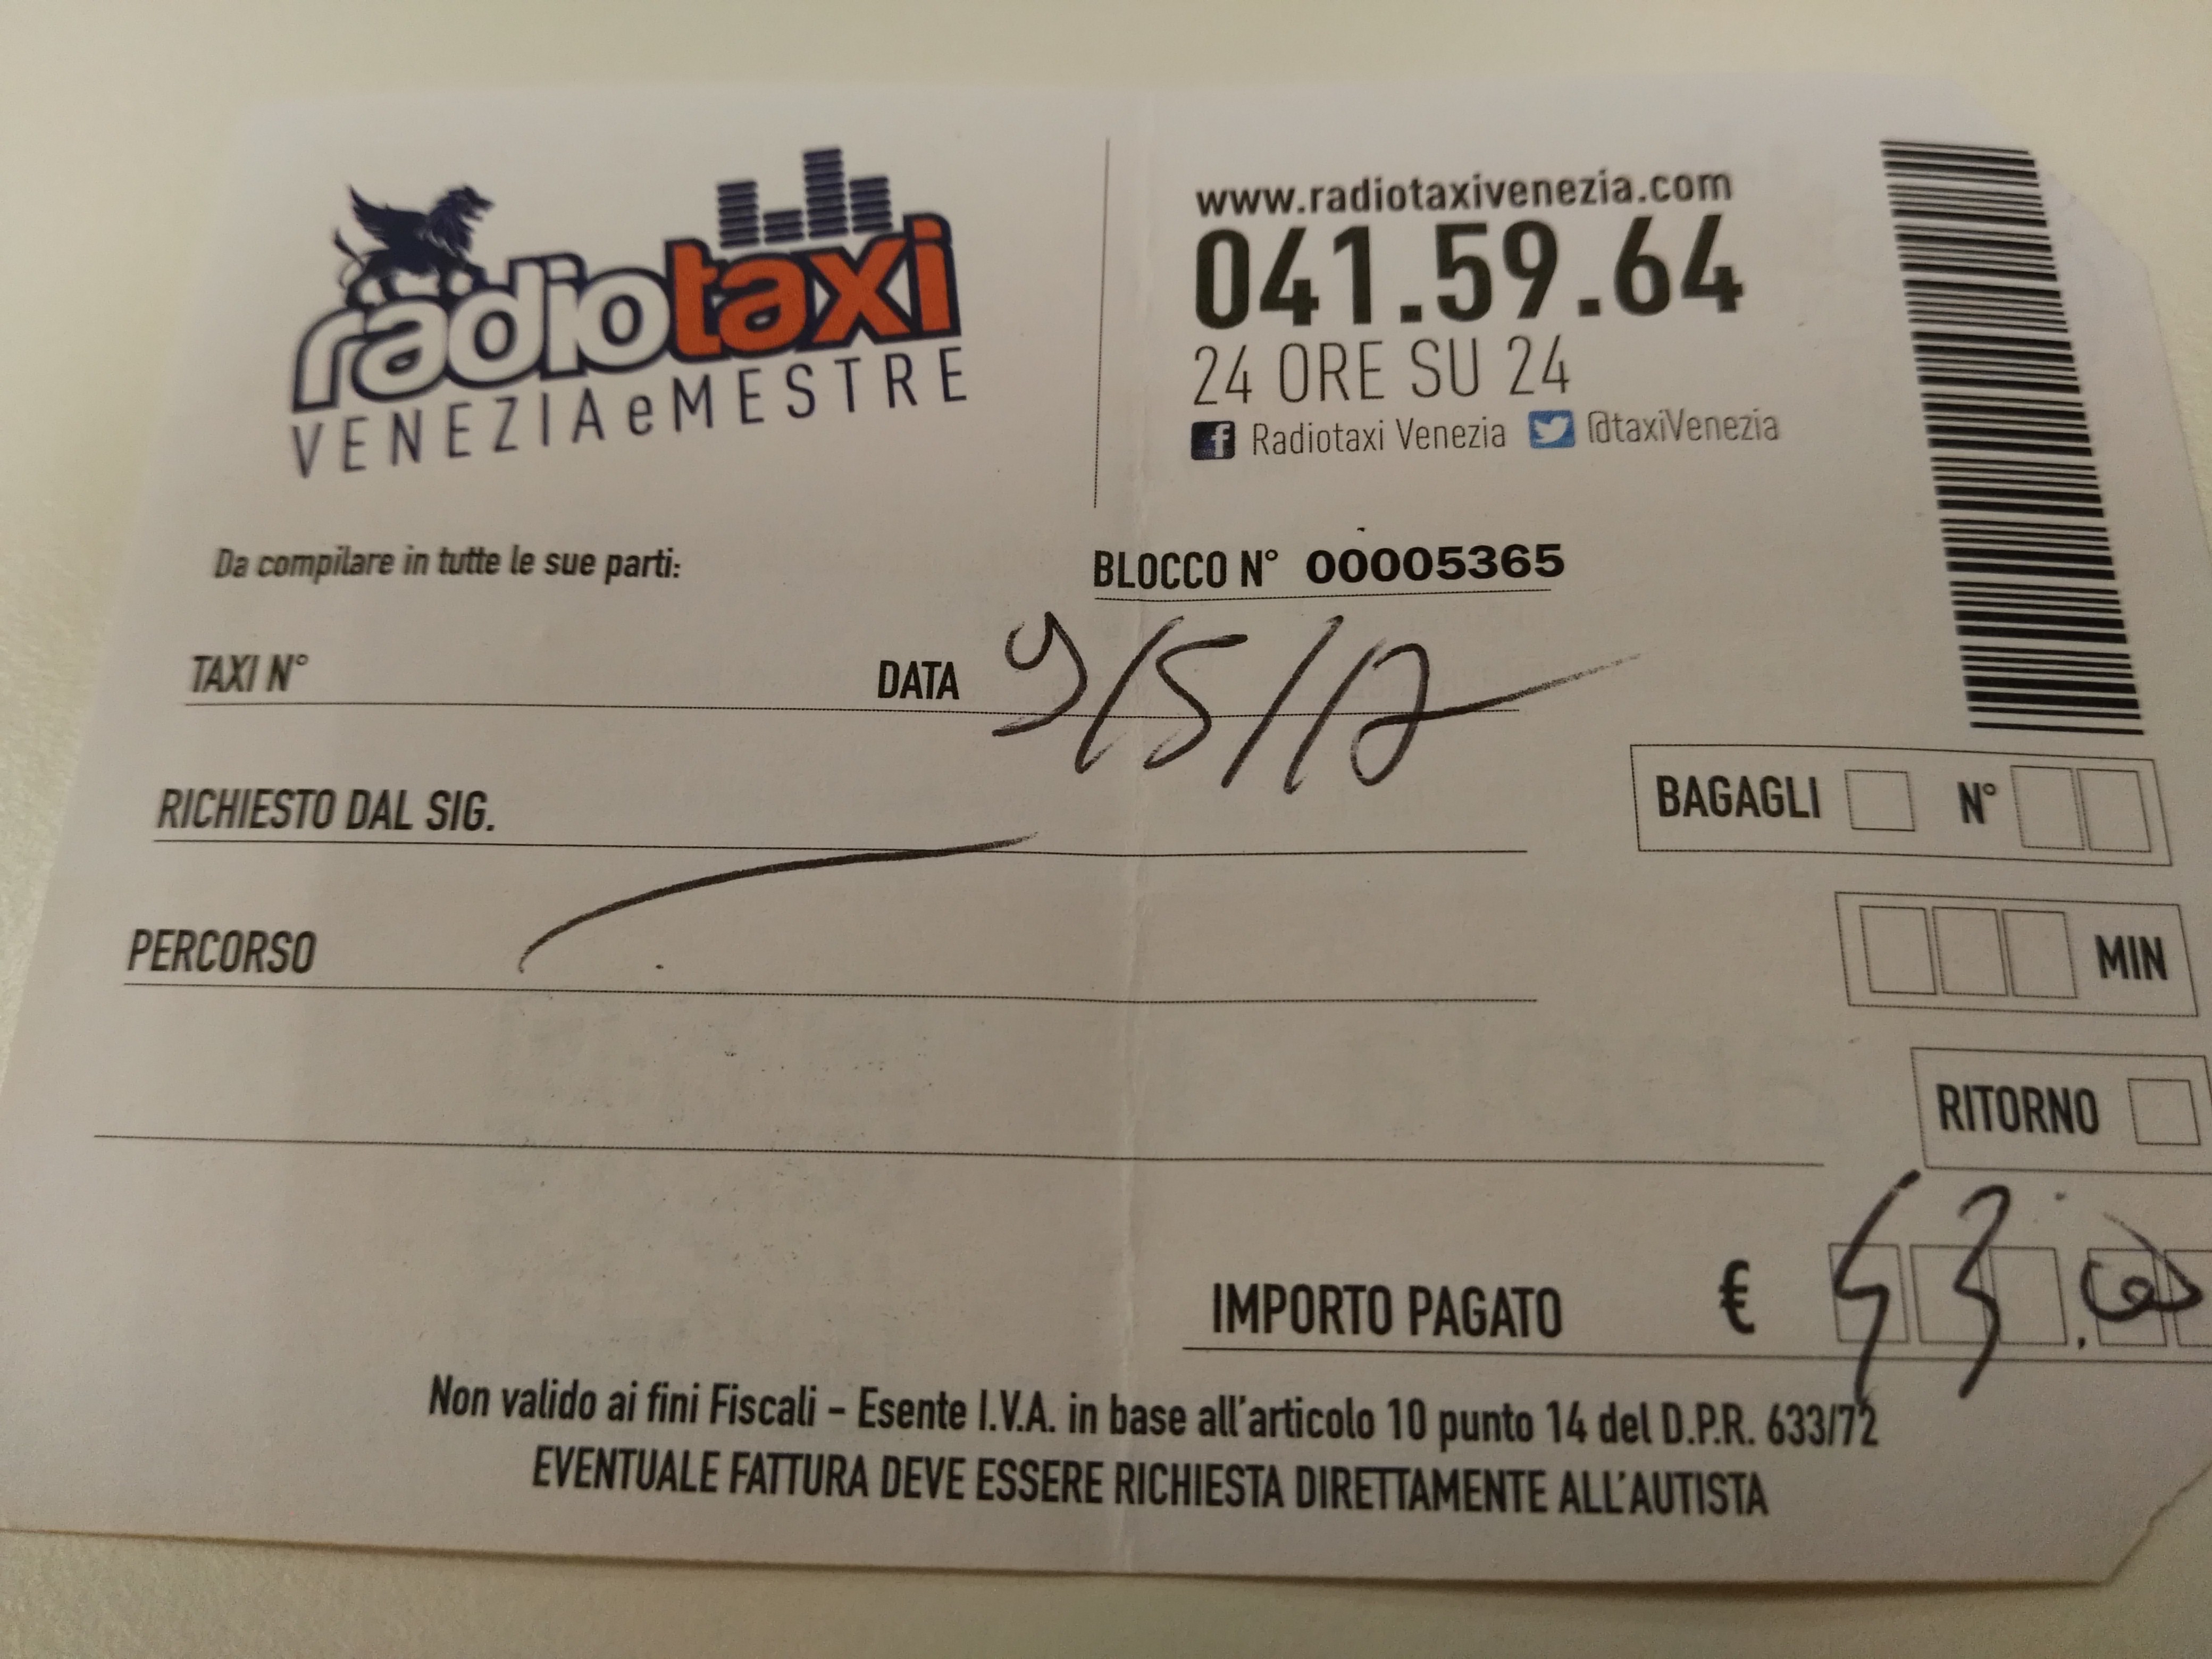 radiotaxi
VENEZIAeMESTRE
www.radiotaxivenezia.com
041.59.64
24 ORE SU 24
Radiotaxi Venezia @taxiVenezia
Da compilare in tutte le sue parti:
BLOCCO N° 00005365
TAXI N°
DATA 9/5/17
RICHIESTO DAL SIG.
BAGAGLI N°
PERCORSO
MIN
RITORNO
IMPORTO PAGATO €
Non valido ai fini Fiscali – Esente I.V.A. in base all'articolo 10 punto 14 del D.P.R. 633/72
EVENTUALE FATTURA DEVE ESSERE RICHIESTA DIRETTAMENTE ALL'AUTISTA